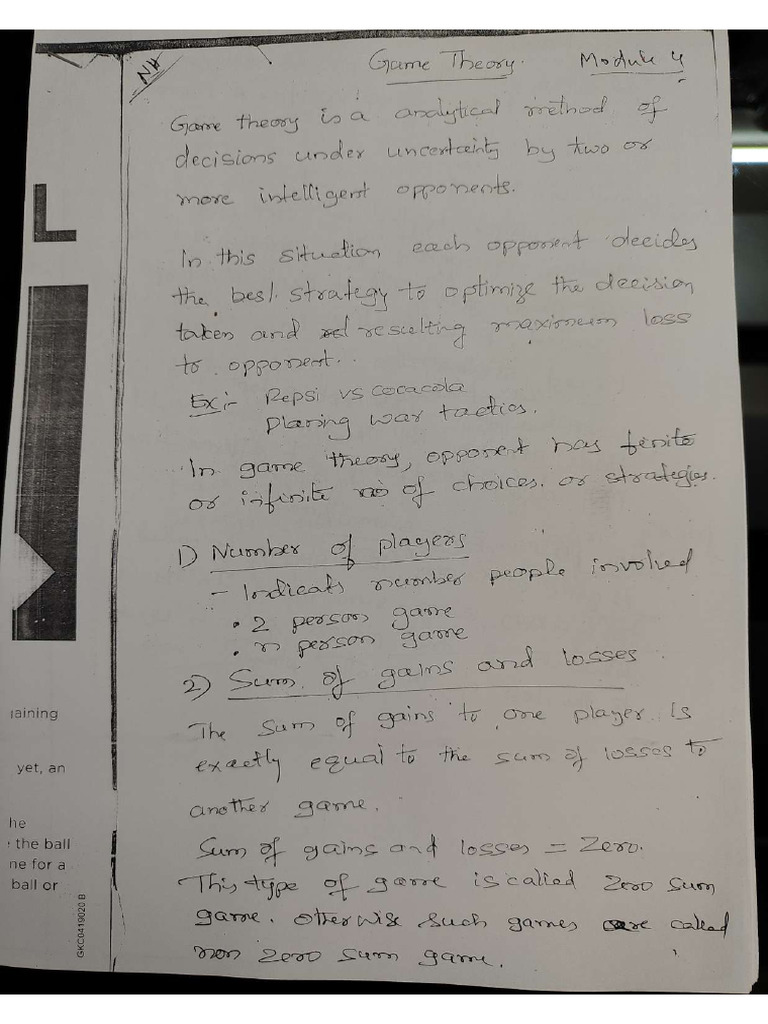 NH
Game Theory. Module 4
Game theory is a analytical method of
decisions under uncertainty by two or
more intelligent opponents.
In this situation each opponent decides
the best strategy to optimize the decision
taken and resulting maximum loss
to opponent.
Ex:- Pepsi vs cocacola
planing war tactics.
In game theory, opponent has finite
or infinite no of choices. or strategies.
1) Number of players
- Indicats number people involved
• 2 person game
• n person game
2) Sum of gains and losses
The sum of gains to one player is
exactly equal to the sum of losses to
another game.
Sum of gains and losses = Zero.
This type of game is called Zero sum
game. Otherwise such games are called
non zero sum game.
L
aining
yet, an
he
the ball
ne for a
ball or
GKC0419020 B